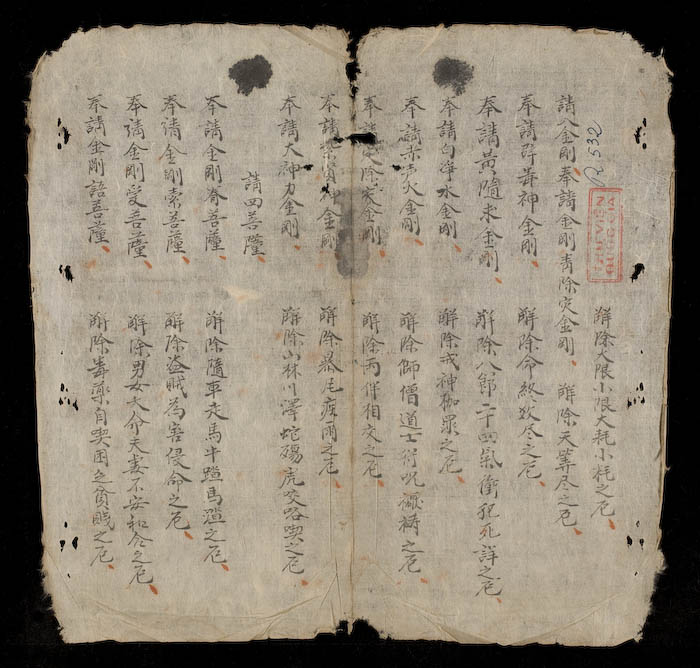 R.532
THƯ VIỆN
QUỐC GIA
解除大限小限大耗小耗之厄
請八金剛奉請金剛青除灾金剛 解除天算尽之厄
奉請辟毒神金剛 解除命終数尽之厄
奉請黄隨求金剛 解除八節二十四氣衝犯死詳之厄
奉請白净水金剛 解除戎神枷鎖之厄
奉請赤声火金剛 解除師僧道士符呪禱之厄
奉請定除灾金剛 解除两併相交之厄
奉請紫賢神金剛 解除暴疾雨之厄
奉請大神力金剛 解除山林川澤蛇殤虎咬啖之厄
請四菩薩
奉請金剛眷菩薩 解除隨車走馬牛蹬馬蹬之厄
奉请金剛索菩薩 解除盗賊為害侵命之厄
奉请金剛爱菩薩 解除男女夫妻不安和合之厄
奉請金剛語菩薩 解除毒藥自契困乏貧賤之厄